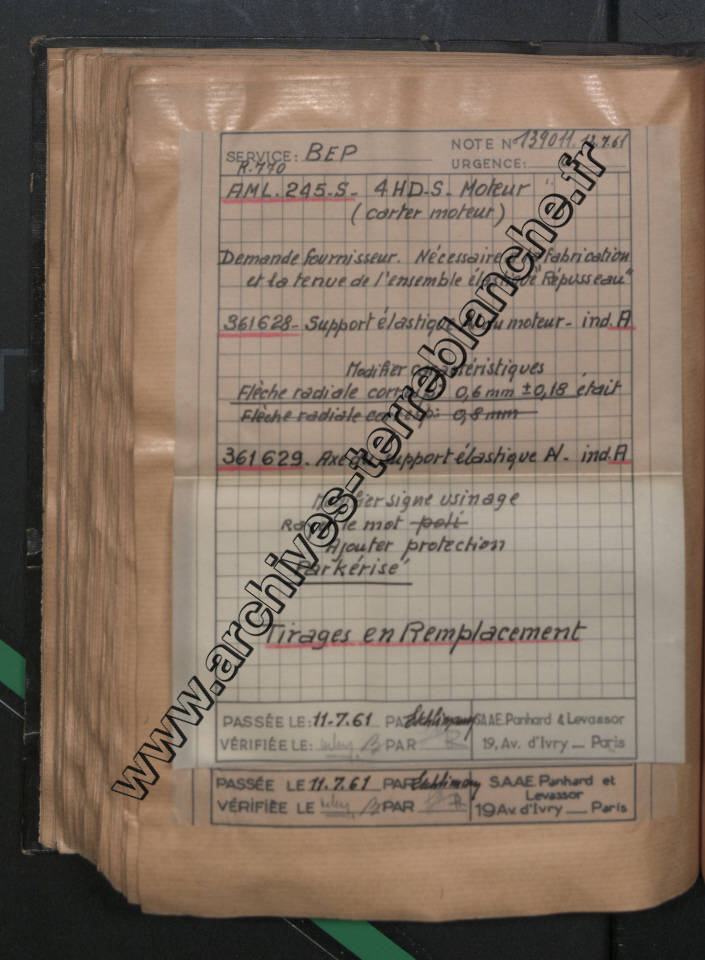 SERVICE: BEP
NOTE N° 139011. 12.7.61
URGENCE:
R.770
AML. 245.S- 4HD-S- Moteur
(carter moteur)
Demande fournisseur. Nécessaire fabrication
et la tenue de l'ensemble élastique "Répusseau"
361628- Support élastique moteur- ind. A
Modifier caractéristiques
Flèche radiale 0,6 mm ±0,18 était
Flèche radiale 0,8 mm
361629. Axe support élastique N- ind. A
signe usinage
le mot poli
Ajouter protection
Parkérisé"
Tirages en Remplacement
PASSÉE LE: 11-7.61 PAR
S.A.A.E. Panhard & Levassor
VÉRIFIÉE LE: PAR
19, Av. d'Ivry __ Paris
PASSÉE LE 11.7.61 PAR
S.A.A.E. Panhard et
Levassor
VÉRIFIÉE LE PAR
19 Av. d'Ivry __ Paris
www.archives-terreblanche.fr